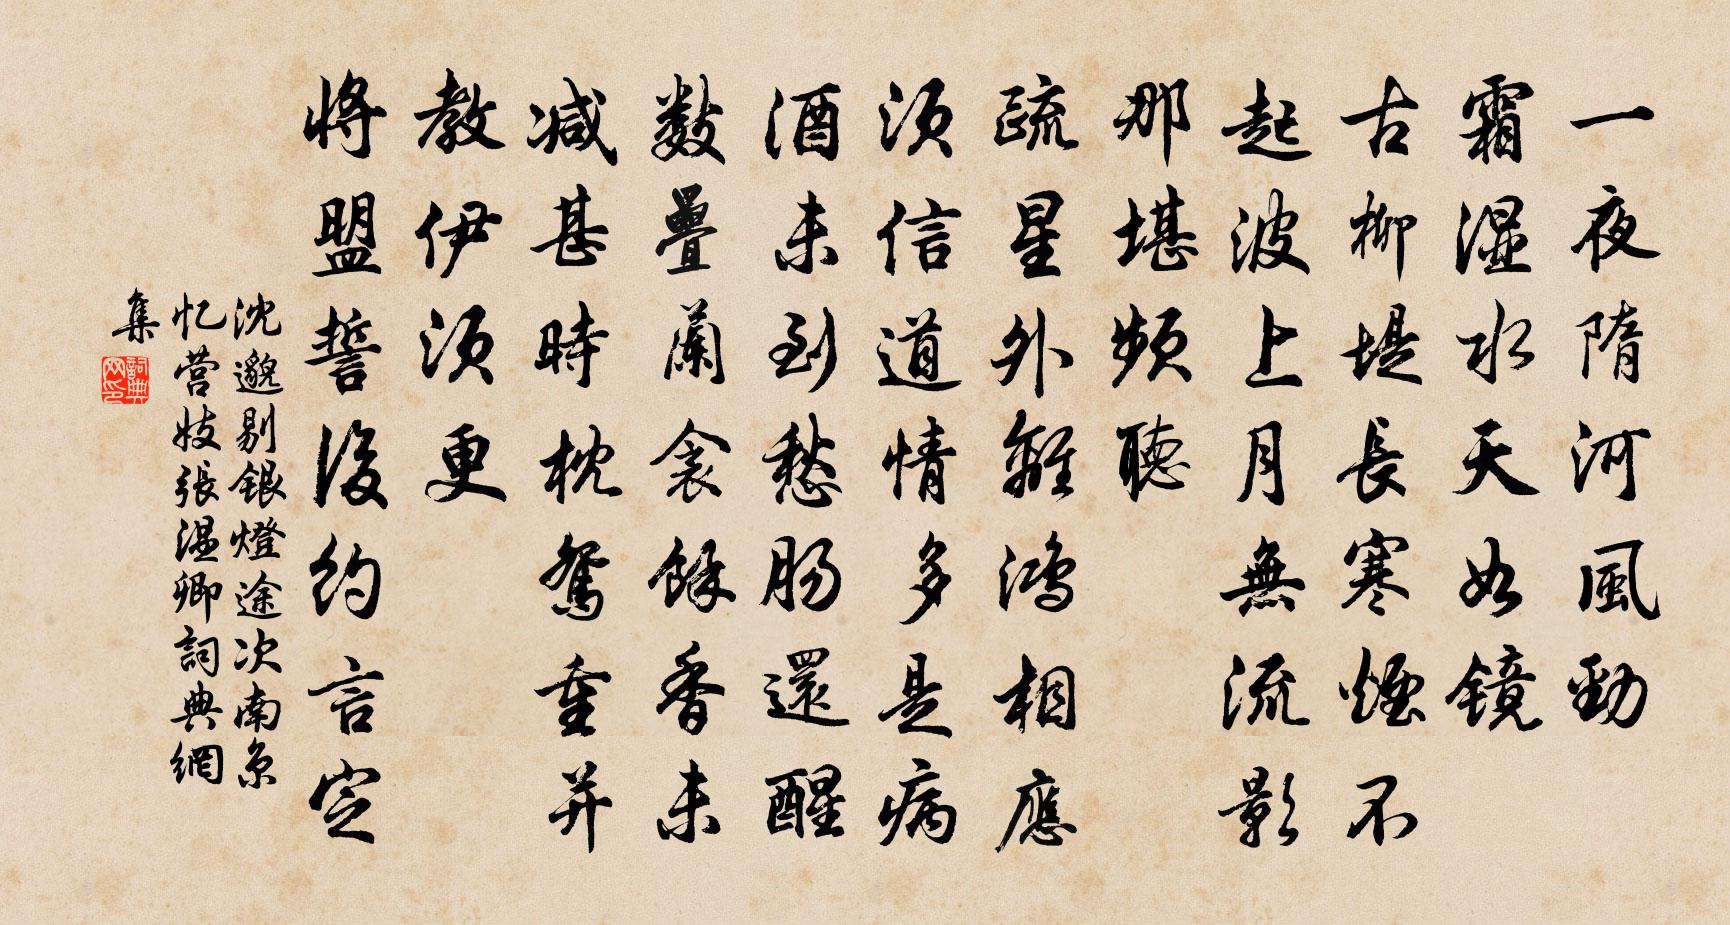 一夜隋河風勁
霜濕水天如鏡
古柳堤長寒煙不
起波上月無流影
那堪頻聽
疏星外離鴻相應
須信道情多是病
酒未到愁腸還醒
數疊蘭衾餘香未
減甚時枕鴛重并
教伊須更
將盟誓後約言定
沈邈剔銀燈途次南京
忆营妓張温卿詞典網
集
詞典
网印